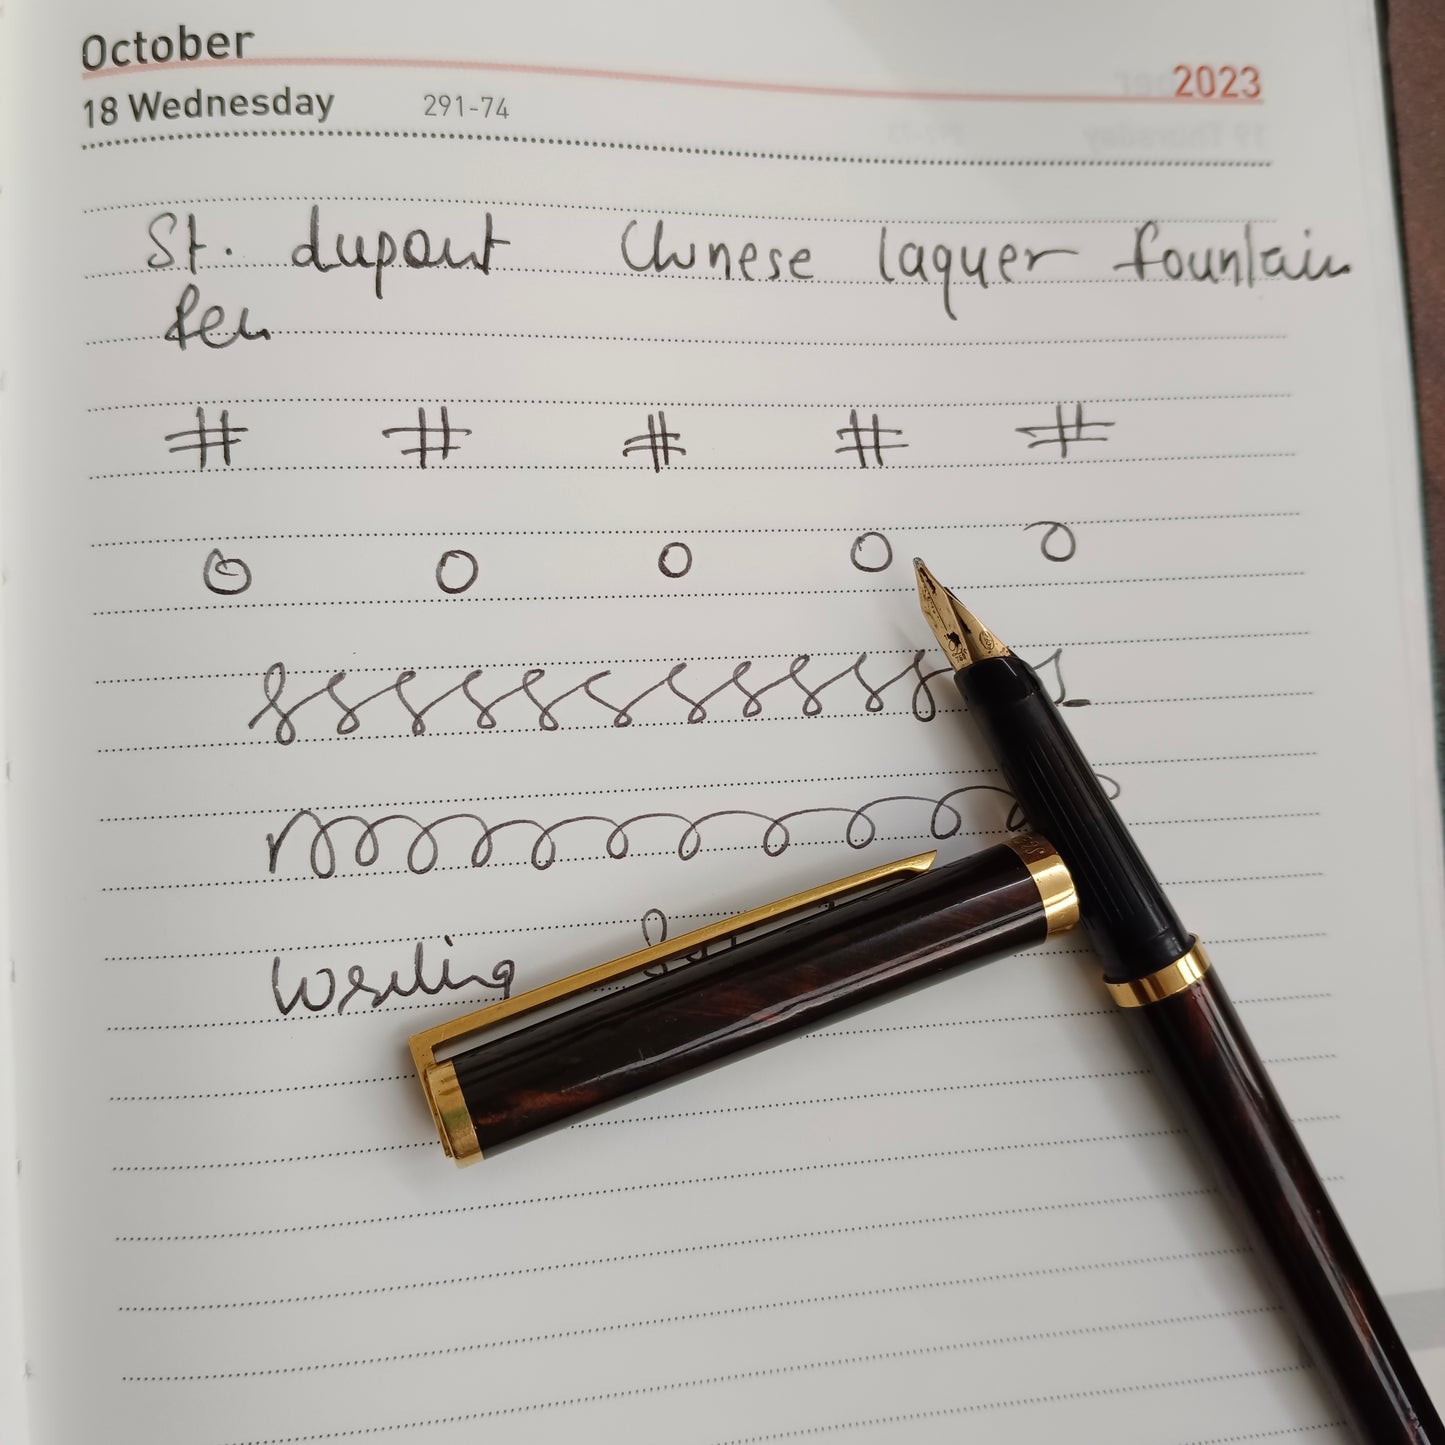 October
2023
18 Wednesday 291-74
St. dupont Chinese laquer fountain
Pen
# # # # #
o o o o o
Writing